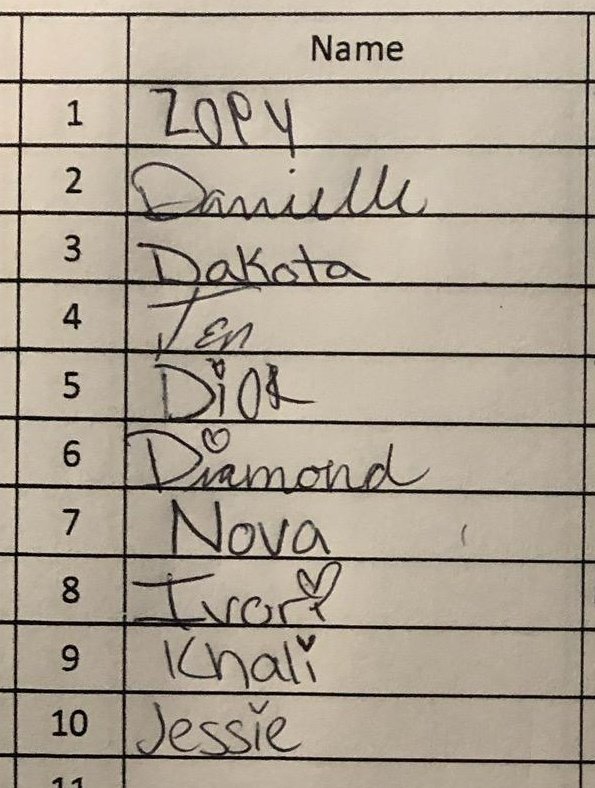 Name
1 ZOPY
2 Danielle
3 Dakota
4 Jen
5 DiOR
6 Diamond
7 Nova
8 Ivori
9 Khali
10 Jessie
11